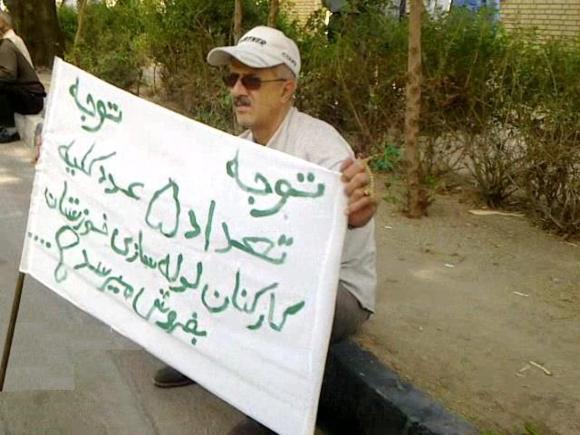 توجه توجه
تعداد ۵ عدد کلیه
کارکنان لوله سازی خوزستان
بفروش میرسد ؟ ....